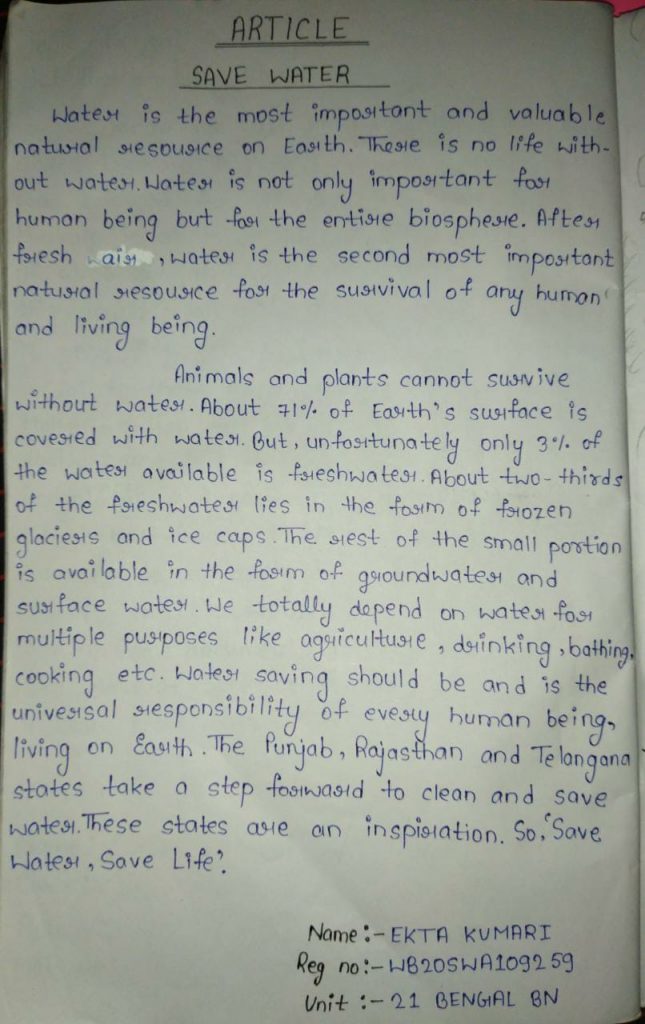 ARTICLE
SAVE WATER
Water is the most important and valuable
natural resource on Earth. There is no life with-
out water. Water is not only important for
human being but for the entire biosphere. After
fresh air, water is the second most important
natural resource for the survival of any human
and living being.
Animals and plants cannot survive
without water. About 71% of Earth's surface is
covered with water. But, unfortunately only 3% of
the water available is freshwater. About two-thirds
of the freshwater lies in the form of frozen
glaciers and ice caps. The rest of the small portion
is available in the form of groundwater and
surface water. We totally depend on water for
multiple purposes like agriculture, drinking, bathing,
cooking etc. Water saving should be and is the
universal responsibility of every human being,
living on Earth. The Punjab, Rajasthan and Telangana
states take a step forward to clean and save
water. These states are an inspiration. So, 'Save
Water, Save Life'.
Name:- EKTA KUMARI
Reg no:- WB20SWA109259
Unit :- 21 BENGAL BN